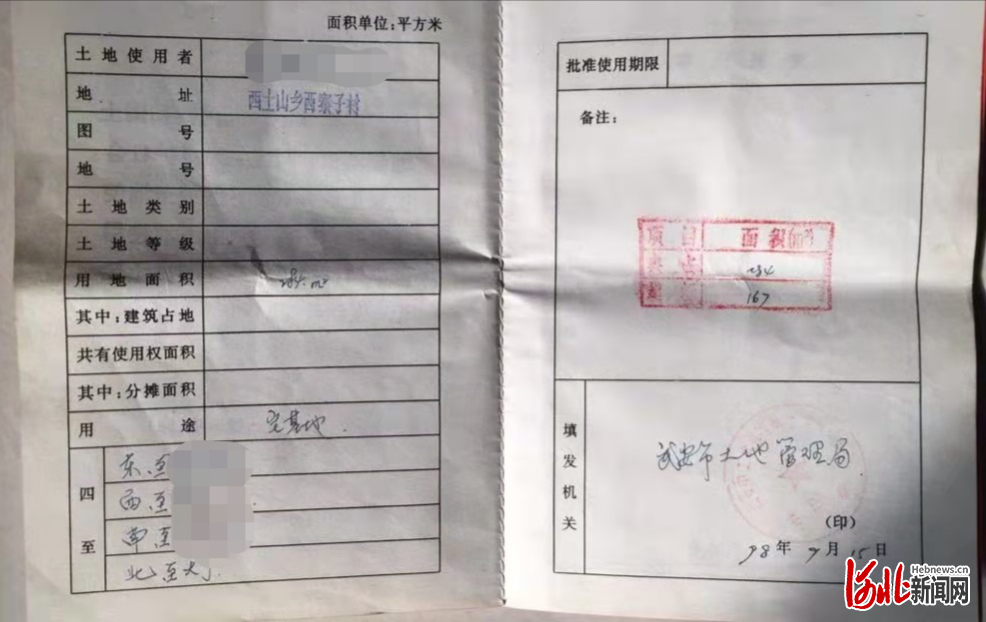 面积单位:平方米
土地使用者
地址 西土山乡西寨子村
图号
地号
土地类别
土地等级
用地面积 284 m²
其中:建筑占地
共有使用权面积
其中:分摊面积
用途 宅基地.
四至
东至
西至
南至
北至大
批准使用期限
备注:
项目 面积(m²)
167
填发机关
武安市土地管理局
(印)
98年 月15日
河北新闻网
Hebnews.cn